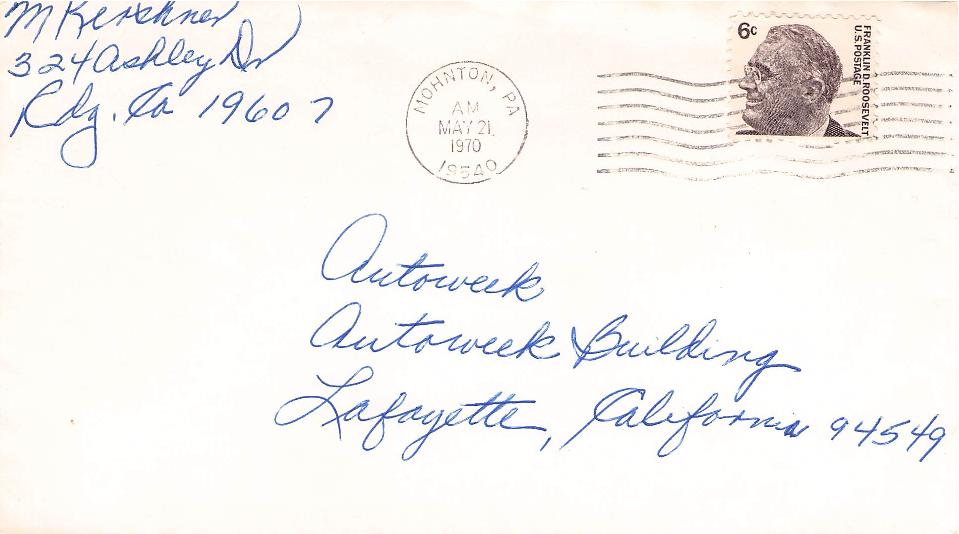 M Kerschner
324 Ashley Dr
Rdg. Pa 19607
MOHNTON, PA
AM
MAY 21,
1970
19540
6c
FRANKLIN D. ROOSEVELT
U.S. POSTAGE
Autoweek
Autoweek Building
Lafayette, California 94549